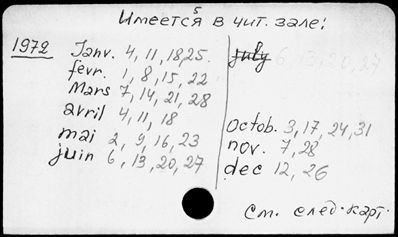 5
Имеется в чит. зале:
1972 Janv. 4, 11, 18, 25.
févr. 1, 8, 15, 22
Mars 7, 14, 21, 28
avril 4, 11, 18
mai 2, 9, 16, 23
juin 6, 13, 20, 27
july 6, 13, 20, 27
Octob. 3, 17, 24, 31
nov. 7, 28
dec 12, 26
См. след. карт.